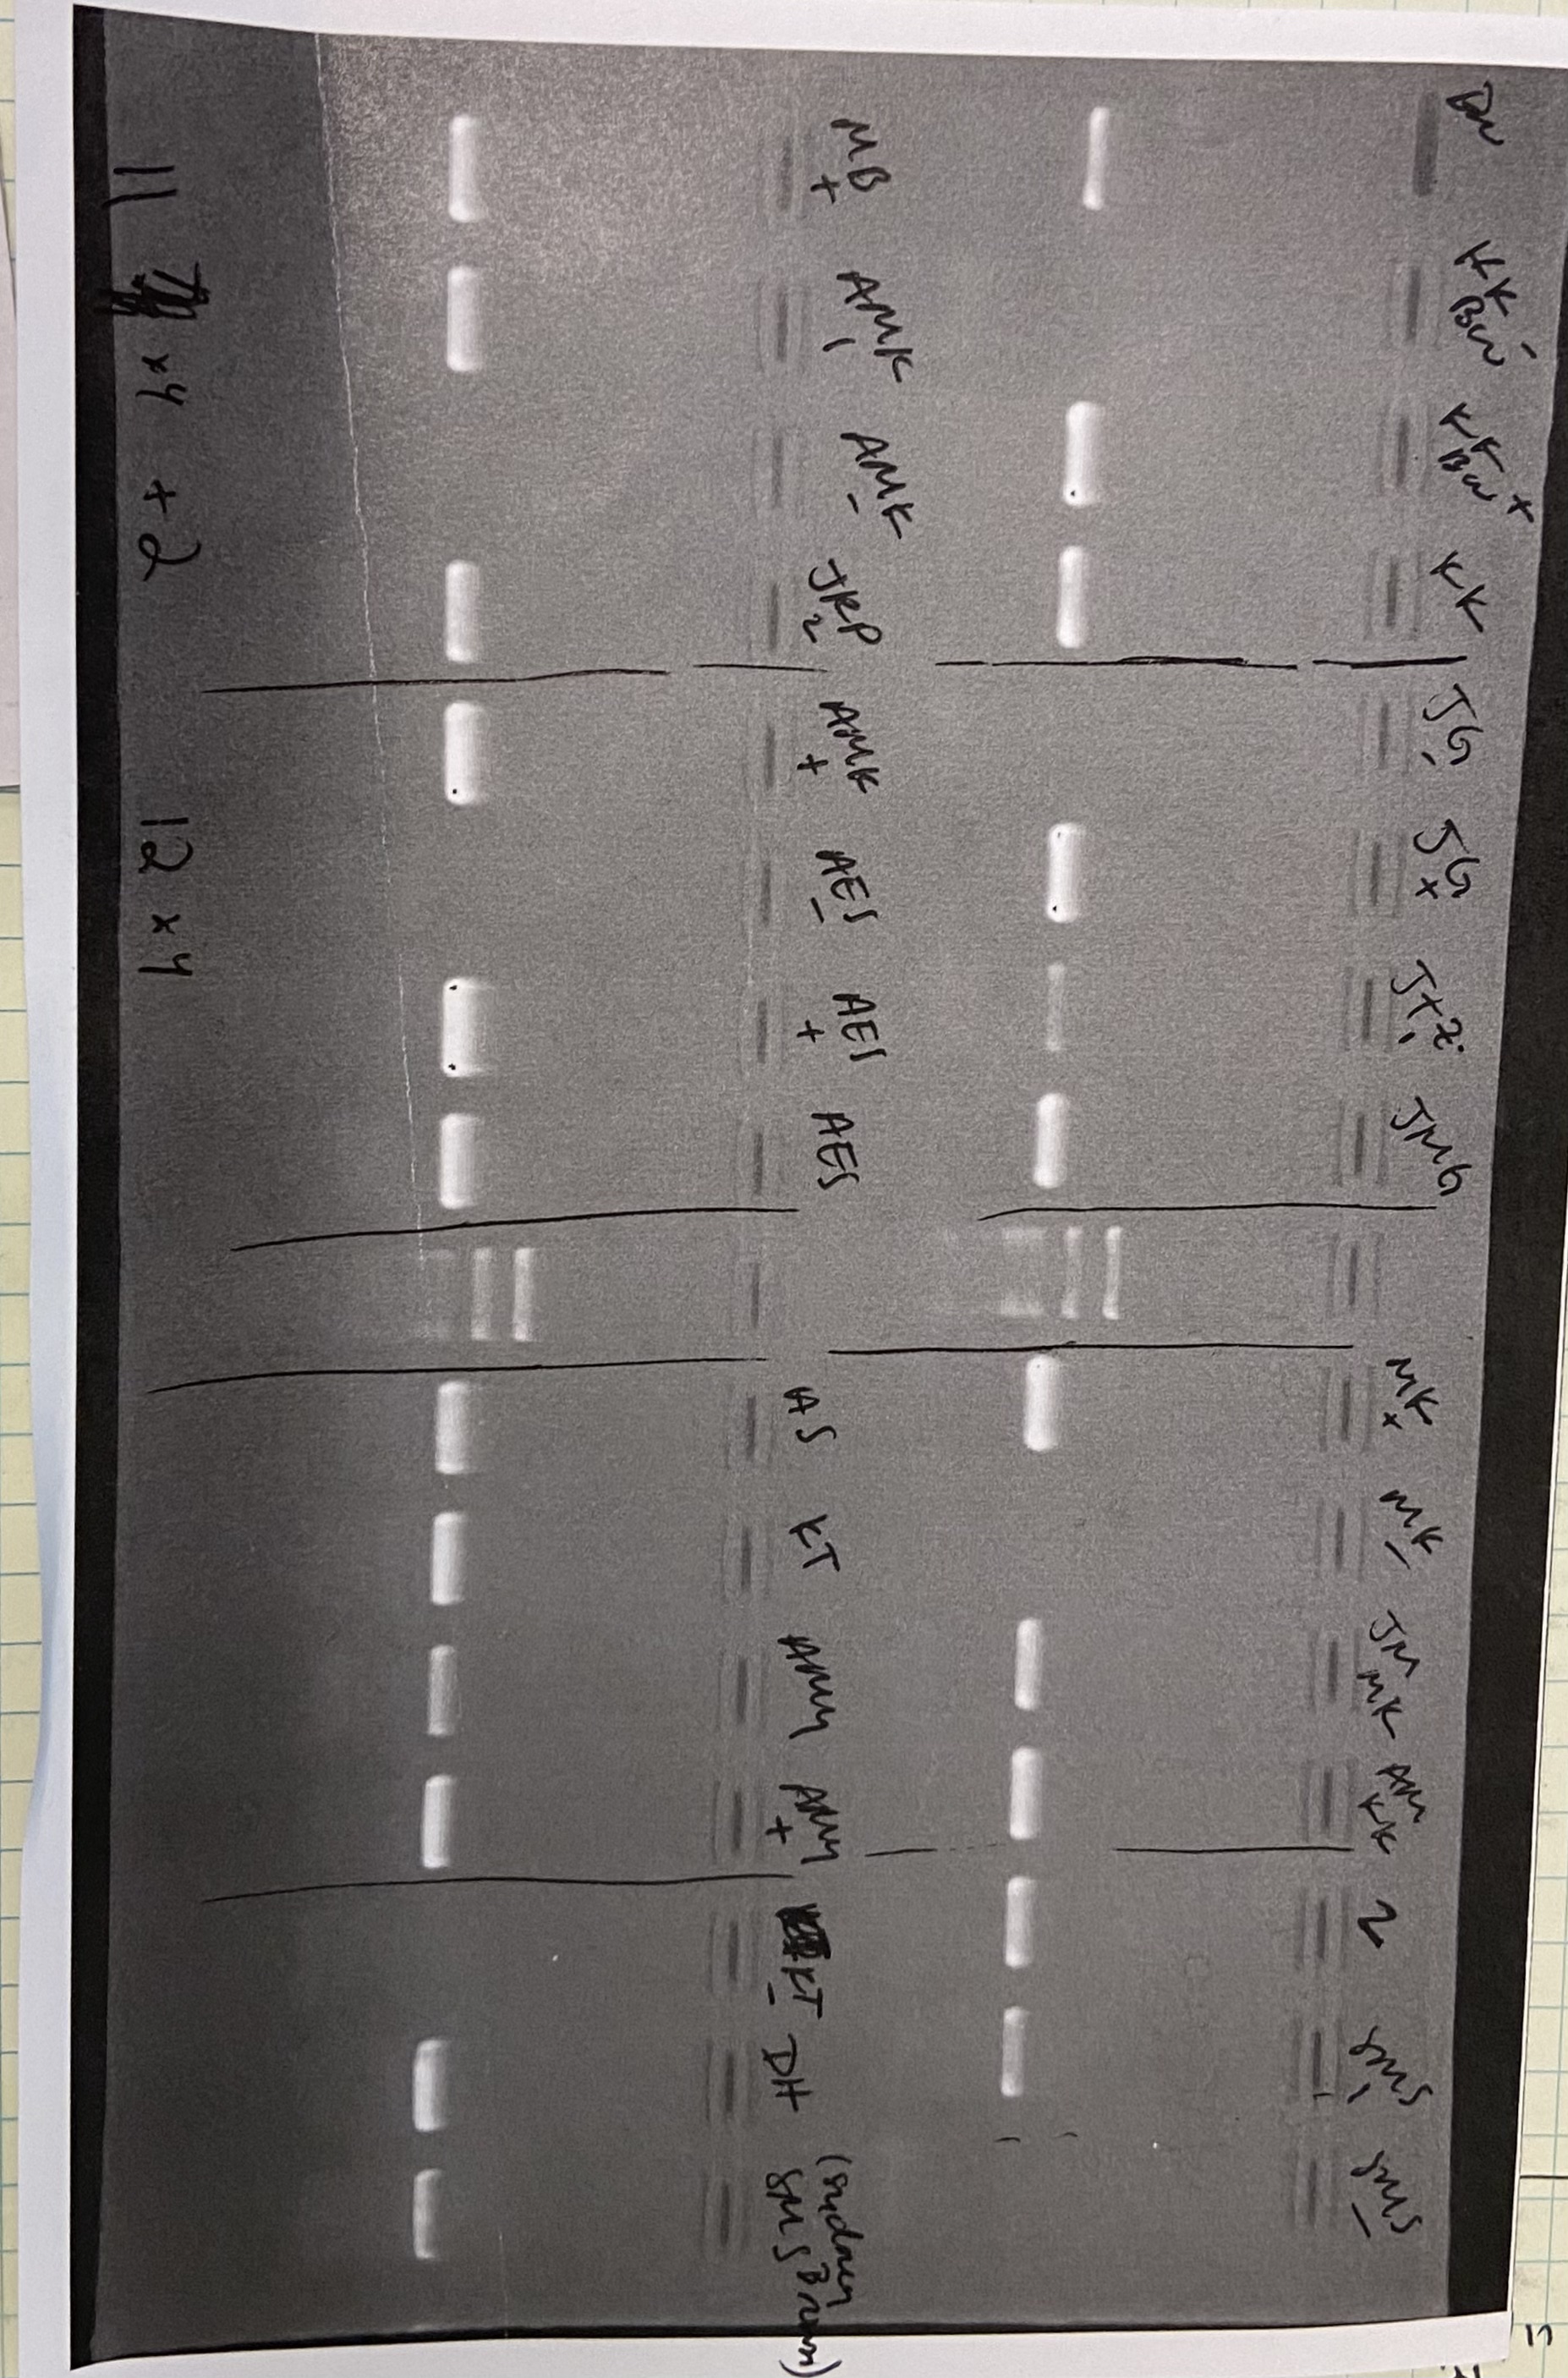 KK
BW -
KK
BW +
KK
JG
-
JG
+
JMG
MK
+
MK
-
JM
MK
AM
KK
2
SMS
1
SMS
-
MB
+
AMK
1
AMK
-
JRP
2
AMK
+
AES
-
AES
+
AES
AS
KT
AMY
AMY
+
KT
-
DH
(Sydney
SMS Brown)
11 x4 + 2
12 x 4